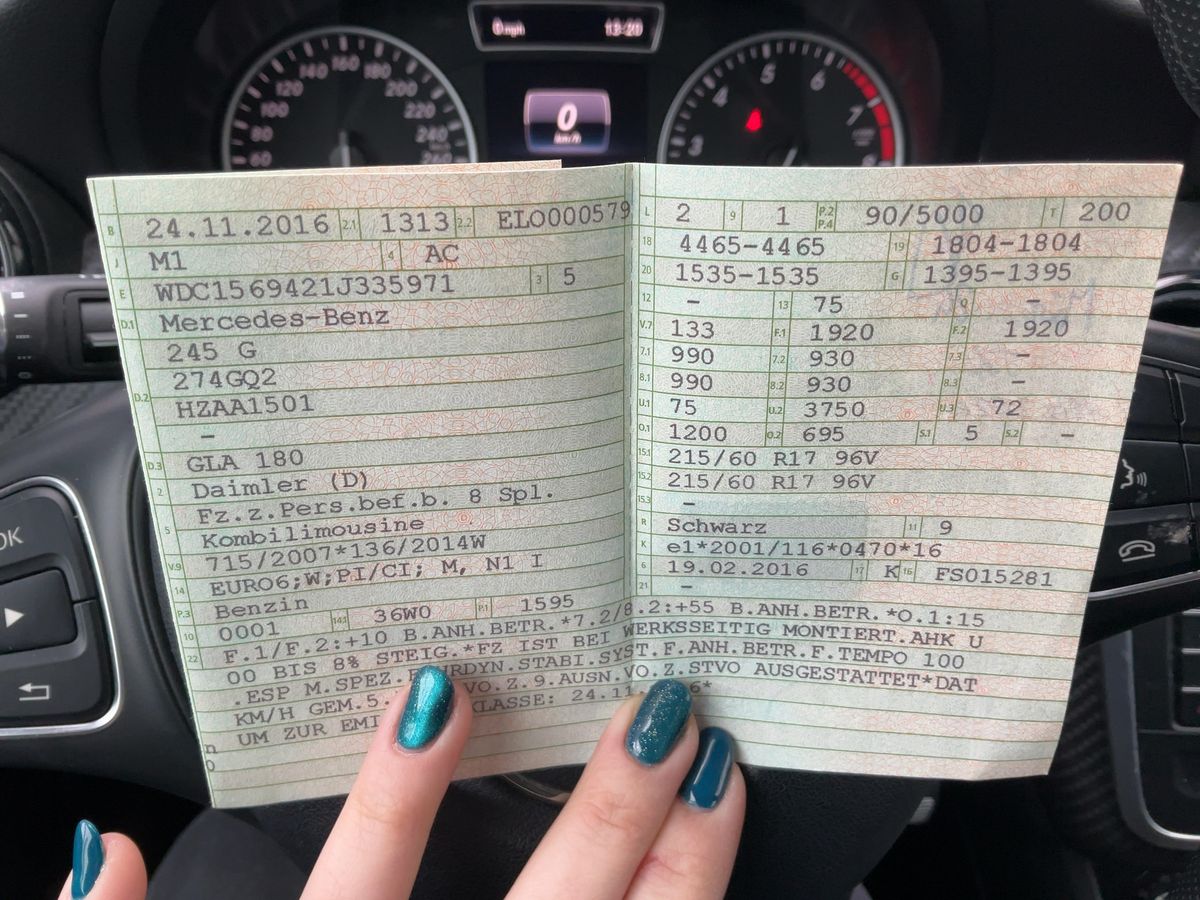 0 mph 13:20
60 80 100 120 140 160 180 200 220 240 260
0
km/h
3 4 5 6 7 8
B 24.11.2016 2.1 1313 2.2 ELO000579
J M1 4 AC
E WDC1569421J335971 3 5
D.1 Mercedes-Benz
245 G
D.2 274GQ2
HZAA1501
–
D.3 GLA 180
2 Daimler (D)
5 Fz.z.Pers.bef.b. 8 Spl.
Kombilimousine
V.9 715/2007*136/2014W
14 EURO6;W;PI/CI; M, N1 I
P.3 Benzin
10 0001 14.1 36W0 P.1 1595
L 2 9 1 P.2 P.4 90/5000 T 200
18 4465-4465 19 1804-1804
20 1535-1535 G 1395-1395
12 – 13 75 Q –
V.7 133 F.1 1920 F.2 1920
7.1 990 7.2 930 7.3 –
8.1 990 8.2 930 8.3 –
U.1 75 U.2 3750 U.3 72
O.1 1200 O.2 695 S.1 5 S.2 –
15.1 215/60 R17 96V
15.2 215/60 R17 96V
15.3 –
R Schwarz 11 9
K e1*2001/116*0470*16
6 19.02.2016 17 K 16 FS015281
21 –
22 F.1/F.2:+10 B.ANH.BETR.*7.2/8.2:+55 B.ANH.BETR.*O.1:15
00 BIS 8% STEIG.*FZ IST BEI WERKSSEITIG MONTIERT.AHK U
.ESP M.SPEZ. STABI.SYST.F.ANH.BETR.F.TEMPO 100
KM/H GEM.5. VO.Z.9.AUSN.VO.Z.STVO AUSGESTATTET*DAT
UM ZUR KLASSE: 24.11
OK